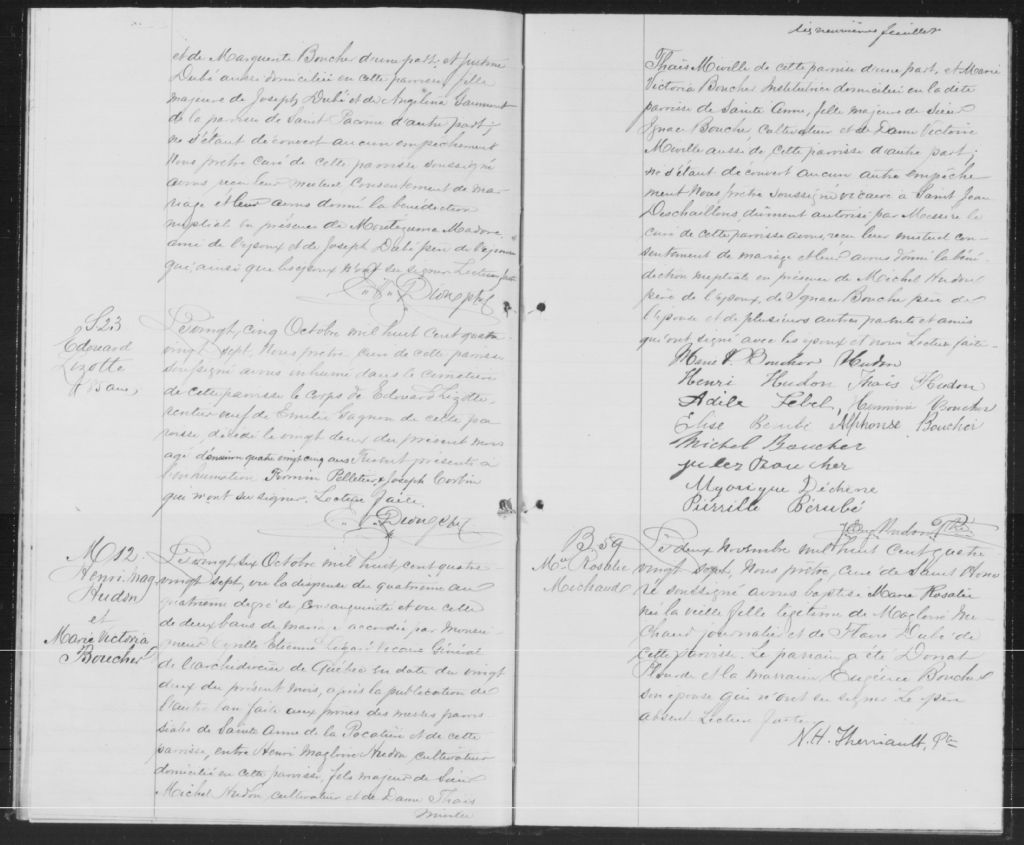 et de Marguerite Boucher d'une part; et Justine
Dubé aussi domiciliée en cette paroisse, fille
majeure de Joseph Dubé et de Angélina Gaumont
de la paroisse de Saint Pacôme d'autre part;
ne s'étant découvert aucun empêchement
Nous prêtre curé de cette paroisse soussigné
avons reçu leur mutuel consentement de ma-
riage et leur avons donné la bénédiction
nuptiale en présence de Madore
ami de l'époux et de Joseph Dubé père de l'épouse
qui, ainsi que les époux n'ont su signer. Lecture faite
Dionne Ptre
S23
Edouard
Lizotte
Le vingt cinq Octobre mil huit cent quatre
vingt sept, Nous prêtre, curé de cette paroisse
soussigné avons inhumé dans le cimetière
de cette paroisse le corps de Edouard Lizotte
rentier veuf de Emilie Gagnon de cette pa
roisse, décédé le vingt deux du présent mois
agé d'environ quatre vingt cinq ans. Furent présents à
l'inhumation Firmin Pelletier & Joseph Fortin
qui n'ont su signer. Lecture faite
Dionne Ptre
M12
Henri Mag
Hudon
et
Marie Victoria
Boucher
Le vingt six Octobre mil huit cent quatre-
vingt sept, vu la dispense du quatrième au
quatrième degré de consanguinité et vu celle
de deux bans de mariage accordée par Monsei
gneur Cyrille Etienne Légaré Vicaire Général
de l'archidiocèse de Québec en date du vingt
deux du présent mois, après la publication de
l'autre ban faite aux prônes des messes parois
siales de Sainte Anne de la Pocatière et de cette
paroisse, entre Henri Magloire Hudon, cultivateur
domicilié en cette paroisse, fils majeur de Sieur
Michel Hudon, cultivateur et de Dame Thaïs
Miville
dix neuvième feuillet
Thaïs Miville de cette paroisse d'une part, et Marie
Victoria Boucher Institutrice domiciliée en la dite
paroisse de Sainte Anne, fille majeure de Sieur
Ignace Boucher, Cultivateur et de Dame Victoire
Miville aussi de cette paroisse d'autre part;
ne s'étant découvert aucun autre empêche
ment Nous prêtre soussigné vicaire à Saint Jean
Deschaillons, dûment autorisé par Messire le
curé de cette paroisse avons reçu leur mutuel con-
sentement de mariage et leur avons donné la béné
diction nuptiale en présence de Michel Hudon
père de l'époux, de Ignace Boucher père de
l'épouse et de plusieurs autres parents et amis
qui ont signé avec les époux et nous Lecture faite.
Marie V. Boucher Hudon
Henri Hudon Thaïs Hudon
Adile Lebel, Herminie Boucher
Elise Bérubé Alphonse Boucher
Michel Boucher
Jules Boucher
Déchêne
Bérubé
Hudon Ptre
B.59
Me Rosalie
Michaud
Le deux Novembre mil huit cent quatre
vingt sept, Nous prêtre, curé de Saint Hono
ré soussigné avons baptisé Marie Rosalie
née la veille fille légitime de Magloire Mi
chaud journalier et de Flavie Dubé de
cette paroisse. Le parrain a été Donat
Plourde et la marraine Eugénie Boucher
son épouse qui n'ont su signer. Le père
absent. Lecture faite
N. H. Therriault, Ptre